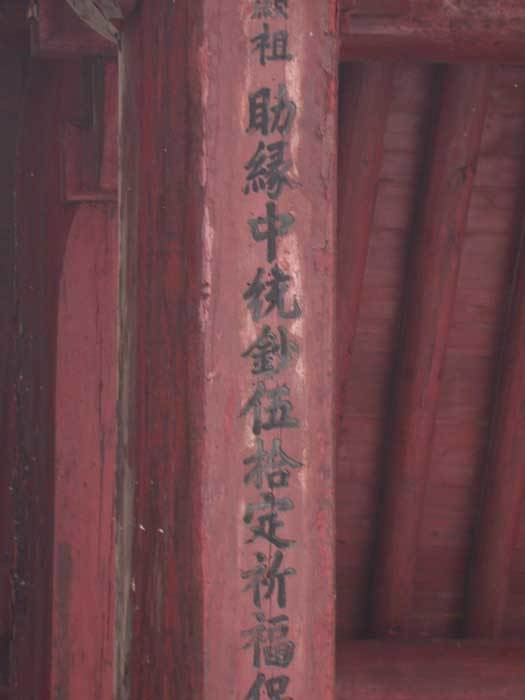 顯祖助緣中統鈔伍拾定祈福保